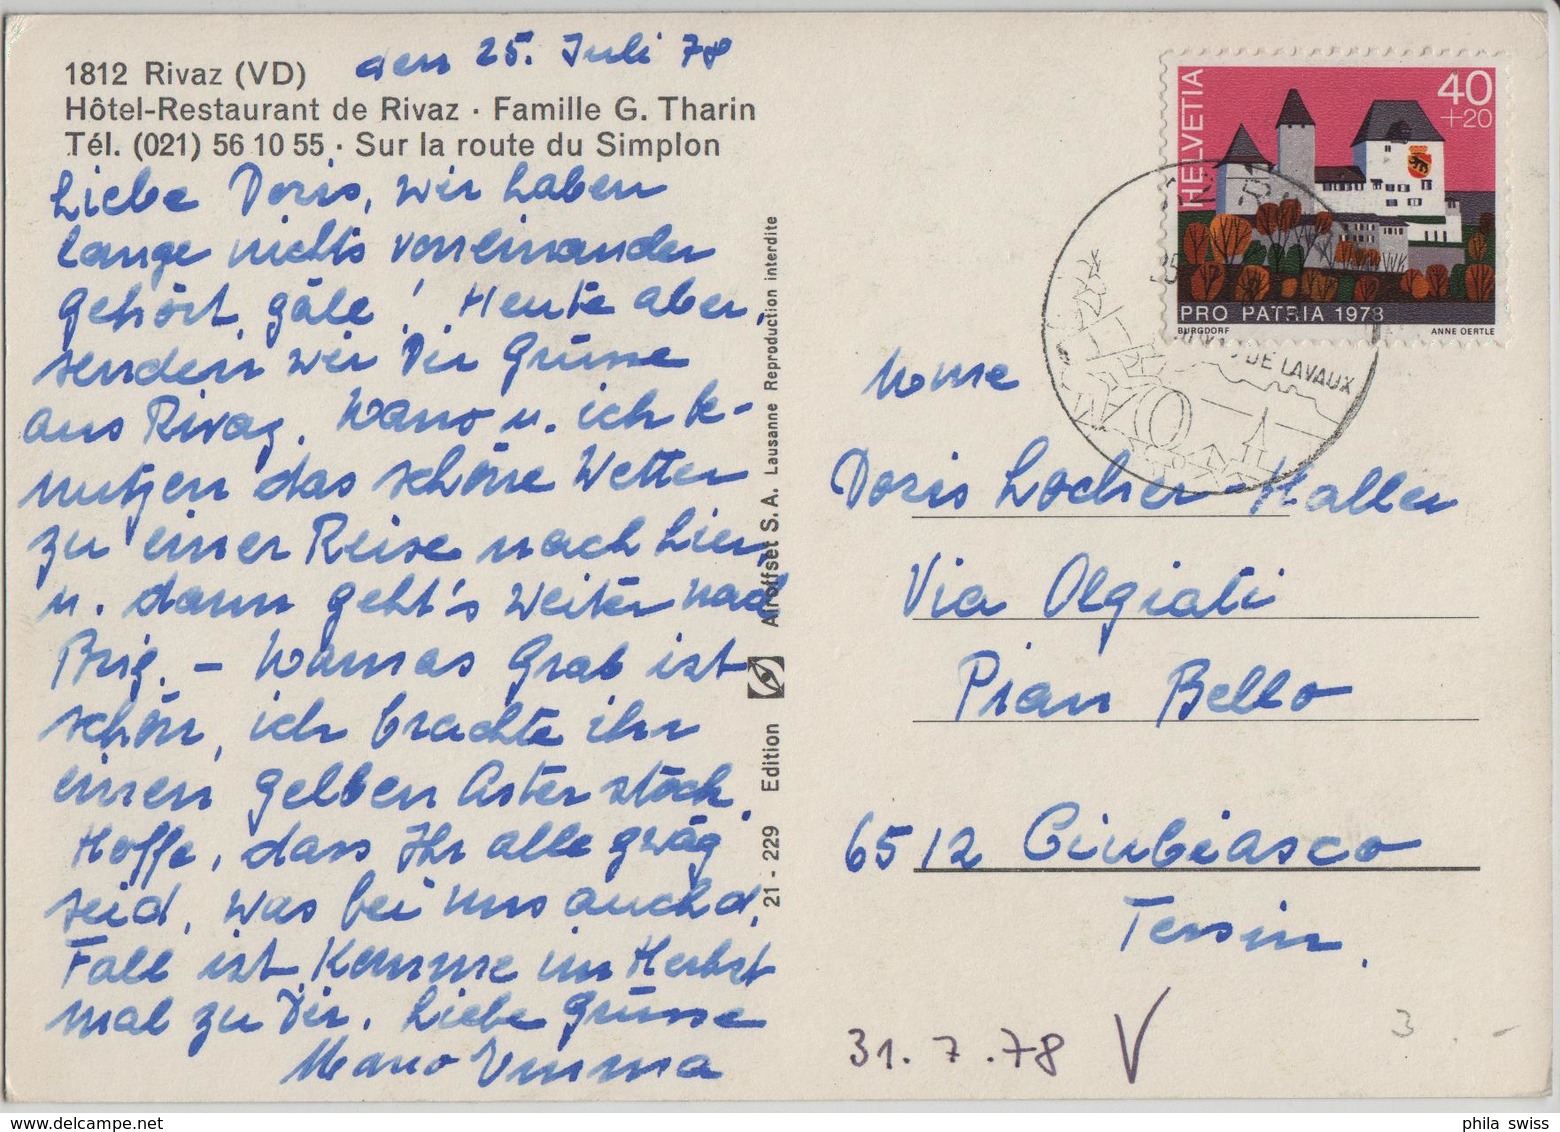 den 25. Juli 78
1812 Rivaz (VD)
Hôtel-Restaurant de Rivaz · Famille G. Tharin
Tél. (021) 56 10 55 · Sur la route du Simplon
Liebe Doris, wir haben
lange nichts voneinander
gehört, gäle! Heute aber,
senden wir Dir Grüsse
aus Rivaz. u. ich be-
nutzen das schöne Wetter
zu einer Reise nach hier
u. dann geht's weiter nach
Brig. – Mamas Grab ist
schön, ich brachte ihr
einen gelben Asterstock.
Hoffe, dass Ihr alle gwäg
seid, was bei uns auch d.
Fall ist. Komme im Herbst
mal zu Dir. Liebe Grüsse
Emma
21 - 229 Edition Airoffset S. A. Lausanne Reproduction interdite
HELVETIA
40
+20
PRO PATRIA 1978
BURGDORF ANNE OERTLE
DE LAVAUX
Doris Locher-Haller
Via Olgiati
Pian Bello
6512 Giubiasco
Tessin.
31.7.78 V
3.-
phila swiss